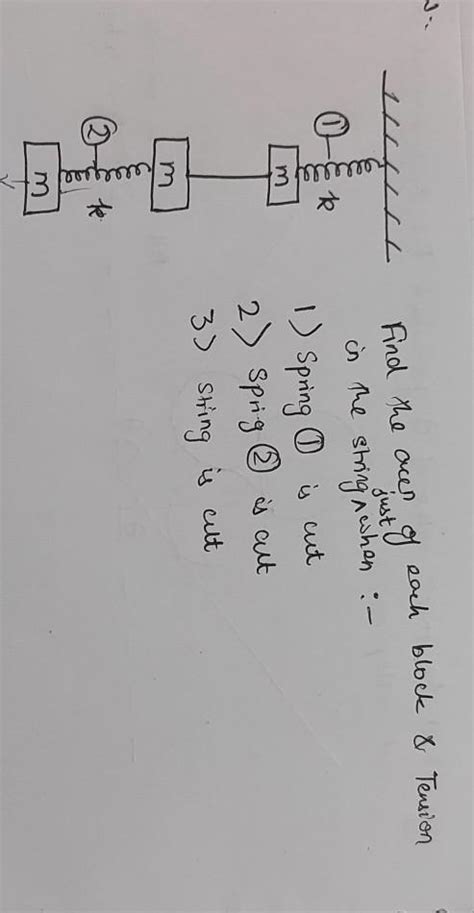 ①
k
m
m
②
k
m
Find the accn of each block & Tension
in the string ^just when :-
1) Spring ① is cut
2) Sprig ② is cut
3) string is cut